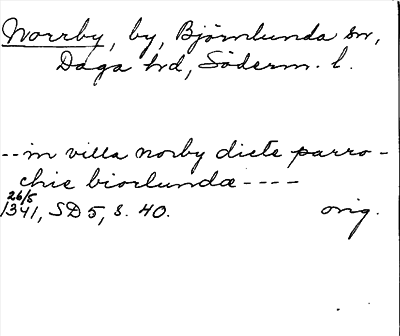 Norrby, by, Björnlunda sn,
Daga hd, Söderm. l.
--in villa norby dicte parro-
chie biorlunda ----
26/5
1341, SD 5, s. 40. orig.